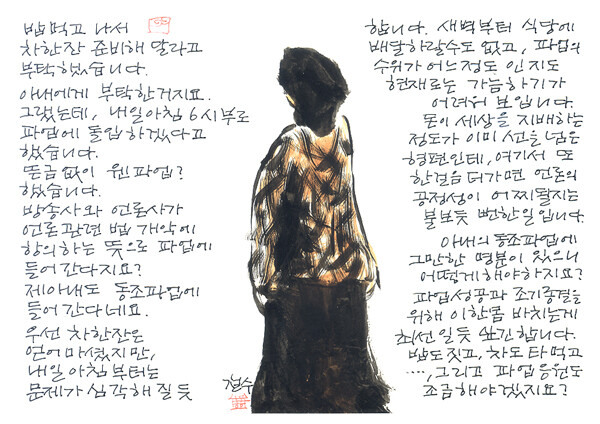 밥먹고 나서
차한잔 준비해 달라고
부탁했습니다.
아내에게 부탁한거지요.
그랬는데, 내일아침 6시부로
파업에 돌입하겠다고
했습니다.
뜬금없이 웬 파업?
했습니다.
방송사와 언론사가
언론관련법 개악에
항의하는 뜻으로 파업에
들어간다지요?
제아내도 동조파업에
들어간다네요.
우선 차한잔은
얻어마셨지만,
내일아침부터는
문제가 심각해질 듯
합니다. 새벽부터 식당에
배달하랄수도 없고, 파업의
수위가 어느정도인지도
현재로는 가늠하기가
어려워 보입니다.
돈이 세상을 지배하는
정도가 이미 선을 넘은
형편인데, 여기서 또
한걸음 더가면 언론의
공정성이 어찌될지는
불보듯 뻔한일입니다.
아내의 동조파업에
그만한 명분이 있으니
어떻게해야하지요?
파업성공과 조기종결을
위해 이한몸 바치는게
최선일듯 싶긴합니다.
밥도짓고, 차도 타먹고
....,그리고 파업응원도
조금해야겠지요?
철수